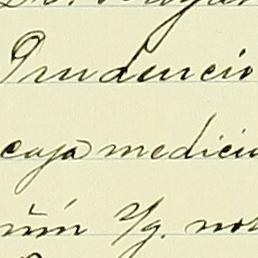 Prudencio
caja medici
núm 2/g. no